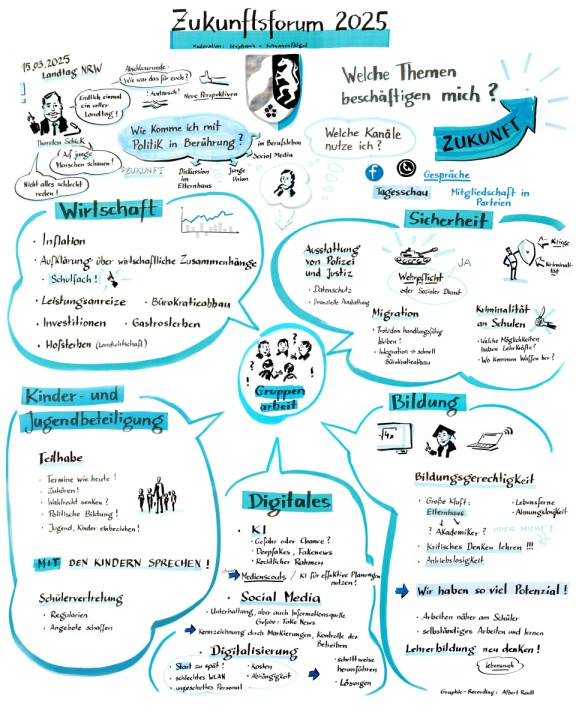 Zukunftsforum 2025
15.03.2025
Landtag NRW
Abschlussrunde:
Wie war das für euch?
! Austausch! Neue Perspektiven
Endlich einmal
ein voller
Landtag!
Thorsten Schick
Auf junge
Menschen schauen!
Nicht alles schlecht
reden!
Welche Themen
beschäftigen mich?
ZUKUNFT
Wie komme ich mit
Politik in Berührung?
ZUKUNFT
Diskussion
im
Elternhaus
Junge
Union
in Berufsleben
Social Media
Welche Kanäle
nutze ich?
Gespräche
Tagesschau
Mitgliedschaft in
Parteien
Wirtschaft
· Inflation
· Aufklärung über wirtschaftliche Zusammenhänge
· Schulfach!
· Leistungsanreize · Bürokratieabbau
· Investitionen · Gastrosterben
· Hofsterben (Landwirtschaft)
Sicherheit
Ausstattung
von Polizei
und Justiz
· Datenschutz
· finanzielle Ausstattung
Wehrpflicht
oder Sozialer Dienst
JA
Kriege
Kriminali-
tät
Migration
· Trotzdem handlungsfähig
bleiben!
· Integration → schnell
Bürokratieabbau
Kriminalität
an Schulen
· Welche Möglichkeiten
haben Lehrkräfte?
· Wo kommen Waffen her?
Gruppen
arbeit
Kinder- und
Jugendbeteiligung
Teilhabe
· Termine wie heute!
· Zuhören!
· Wahlrecht senken?
· Politische Bildung!
· Jugend, Kinder einbeziehen!
MIT DEN KINDERN SPRECHEN!
Schülervertretung
· Regularien
· Angebote schaffen
Digitales
· KI
· Gefahr oder Chance?
· Deepfakes, Fakenews
· Rechtlicher Rahmen
Medienscouts / KI für effektive Planungen
nutzen!
· Social Media
· Unterhaltung, aber auch Informationsquelle
Gefahr: Fake News
Kennzeichnung durch Markierungen, Kontrolle der
Betreiber
· Digitalisierung
· Start zu spät!
· schlechtes WLAN
· ungeschultes Personal
· Kosten
· Abhängigkeit
· schrittweise
heranführen
· Lösungen
Bildung
√4x
Bildungsgerechtigkeit
· Große Kluft:
Elternhaus
? Akademiker?
ODER NICHT!
· Lebensferne
· Ahnungslosigkeit
· Kritisches Denken lehren!!!
· Antriebslosigkeit
Wir haben so viel Potenzial!
· Arbeiten näher am Schüler
· selbständiges Arbeiten und lernen
Lehrerbildung neu denken!
lebensnah
Graphic-Recording: